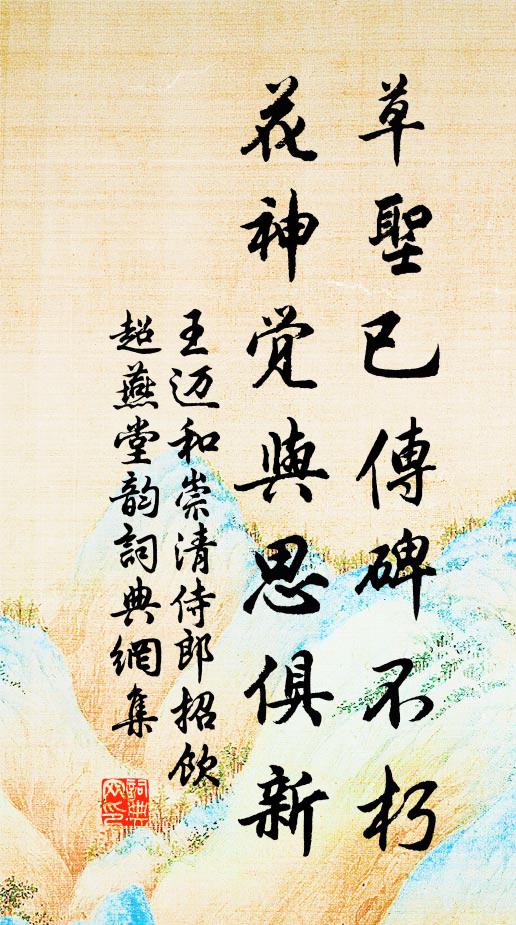 草聖已傳碑不朽
花神觉與思俱新
王迈和崇清侍郎招飲
超燕堂韵詞典網集
詞典网印